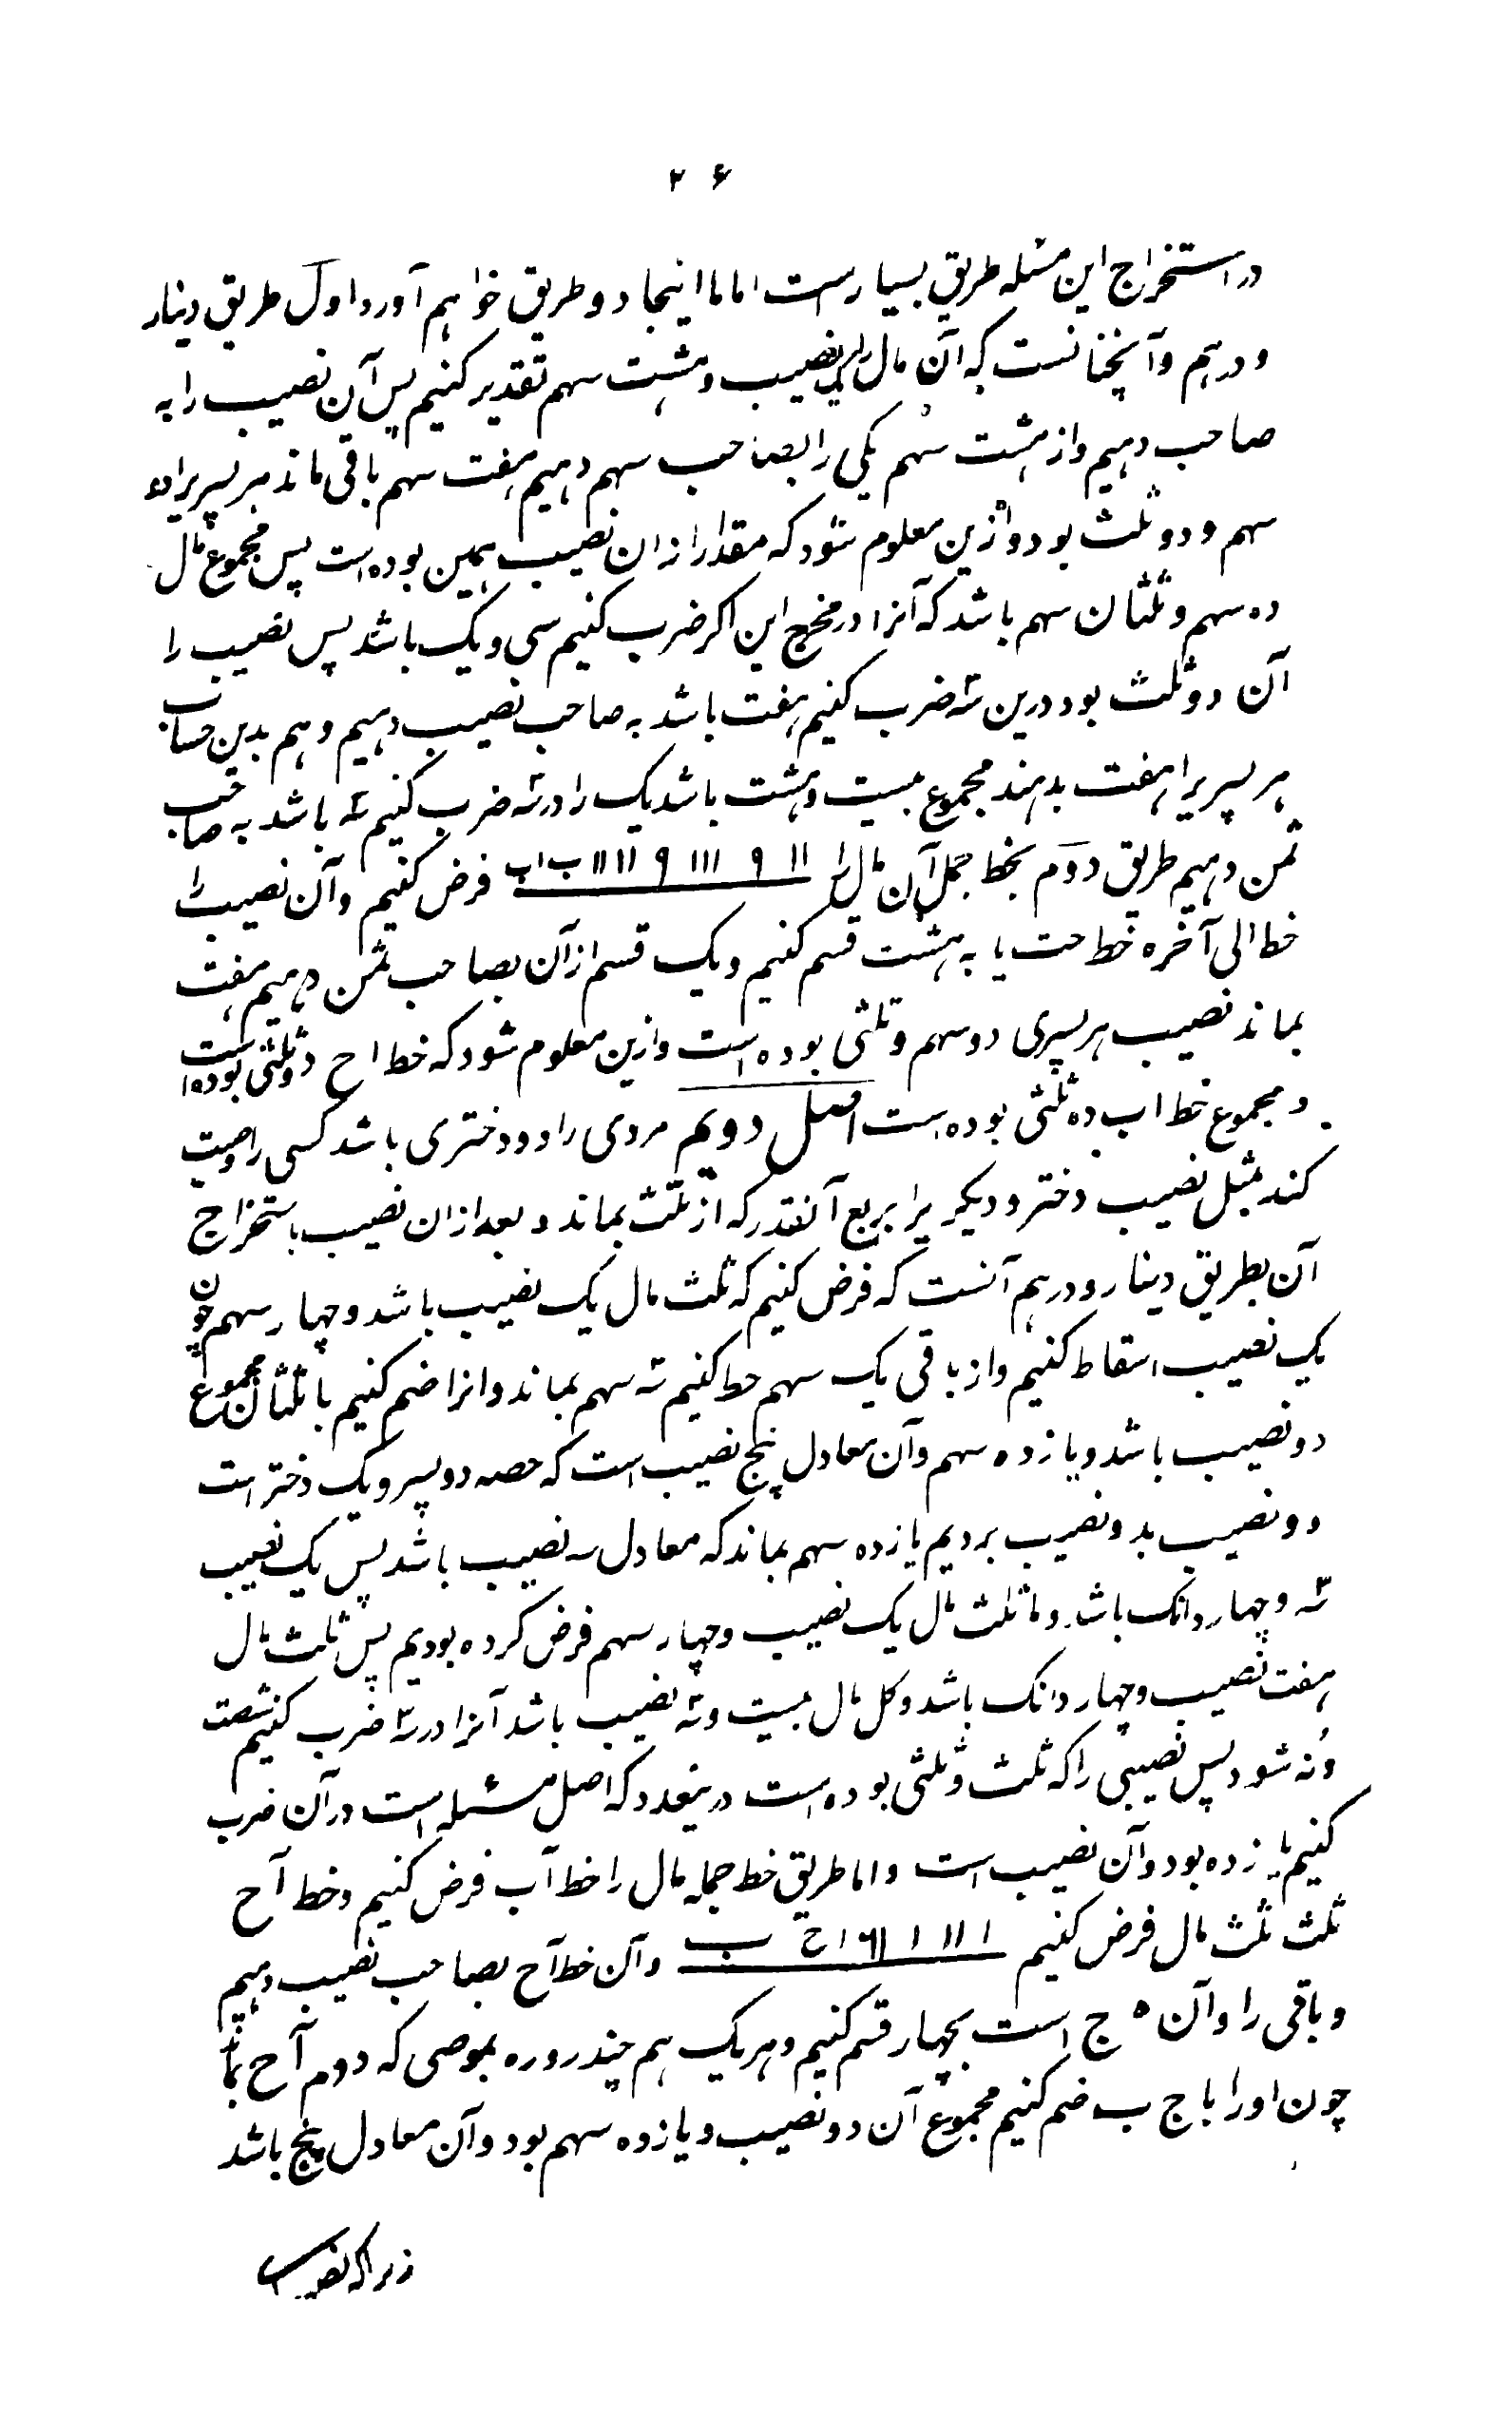 ۲۶
در استخراج این مسئله طریق بسیارست اما ما اینجا دو طریق خواهیم آورد اول طریق دینار
و درهم و آنچنانست که آن مال را نصیب و هشت سهم تقدیر کنیم پس آن نصیب را به
صاحب دهیم و از هشت سهم یکی را بصاحب سهم دهیم هفت سهم باقی ماند هر پسریرا دو
سهم و دو ثلث بود و ازین معلوم شود که مقدار از ان نصیب همین بوده است پس مجموع مال
ده سهم و ثلثان سهم باشد که آنرا در مخرج این اکر ضرب کنیم سی و یک باشد پس نصیب را
آن دو ثلث بود درین سه ضرب کنیم هفت باشد به صاحب نصیب دهیم و هم بدین حساب
هر پسریرا هفت بدهند مجموع بیست و هشت باشد یک را در سه ضرب کنیم سه باشد به صاحب
ثمن دهیم طریق دوم بخط جمل آن مال را ۱۱ ۹ ۱۱۱ ۹ ۱۱ ۱۱ ب ا ب فرض کنیم و آن نصیب را
خط الی آخره خط حت یا به هشت قسم کنیم و یک قسم از آن بصاحب ثمن دهیم هفت
بماند نصیب هر پسری دو سهم و ثلثی بوده است و ازین معلوم شود که خط ا ح دو ثلثی بوده است
و مجموع خط اب ده ثلثی بوده است اصل دویم مردی را دو دختری باشد کسی را وصیت
کند بمثل نصیب دختر و دیکر یرا بربع آنقدر که از ثلث بماند و بعد از ان نصیب باستخراج
آن بطریق دینار و درهم آنست که فرض کنیم که ثلث مال یک نصیب باشد و چهار سهم چون
یک نصیب اسقاط کنیم و از باقی یک سهم حط کنیم سه سهم بماند و انرا ضم کنیم با ثلثان مجموع
دو نصیب باشد و یازده سهم و آن معادل پنج نصیب است که حصه دو پسر و یک دختر است
دو نصیب بدو نصیب بردیم یازده سهم بماند که معادل سه نصیب باشد پس یک نصیب
سه و چهار دانک باشد و ما ثلث مال یک نصیب و چهار سهم فرض کرده بودیم پس ثلث مال
هفت نصیب و چهار دانک باشد و کل مال بیست و سه نصیب باشد آنرا در سه ضرب کنیم شصت
و نه شود پس نصیبی را که ثلث و ثلثی بوده است درینعدد که اصل مسئله است در آن ضرب
کنیم یازده بود و آن نصیب است و اما طریق خط جمله مال را خط آب فرض کنیم و خط آح
ثلث ثلث مال فرض کنیم ح ب و آن خط آح بصاحب نصیب دهیم
و باقی را و آن ه ج است بچهار قسم کنیم و هر یک هم چند روره بموصی که دوم آ ح
چون او را با ج ب ضم کنیم مجموع آن دو نصیب و یازده سهم بود و آن معادل پنج باشد
زیراکه نصیب